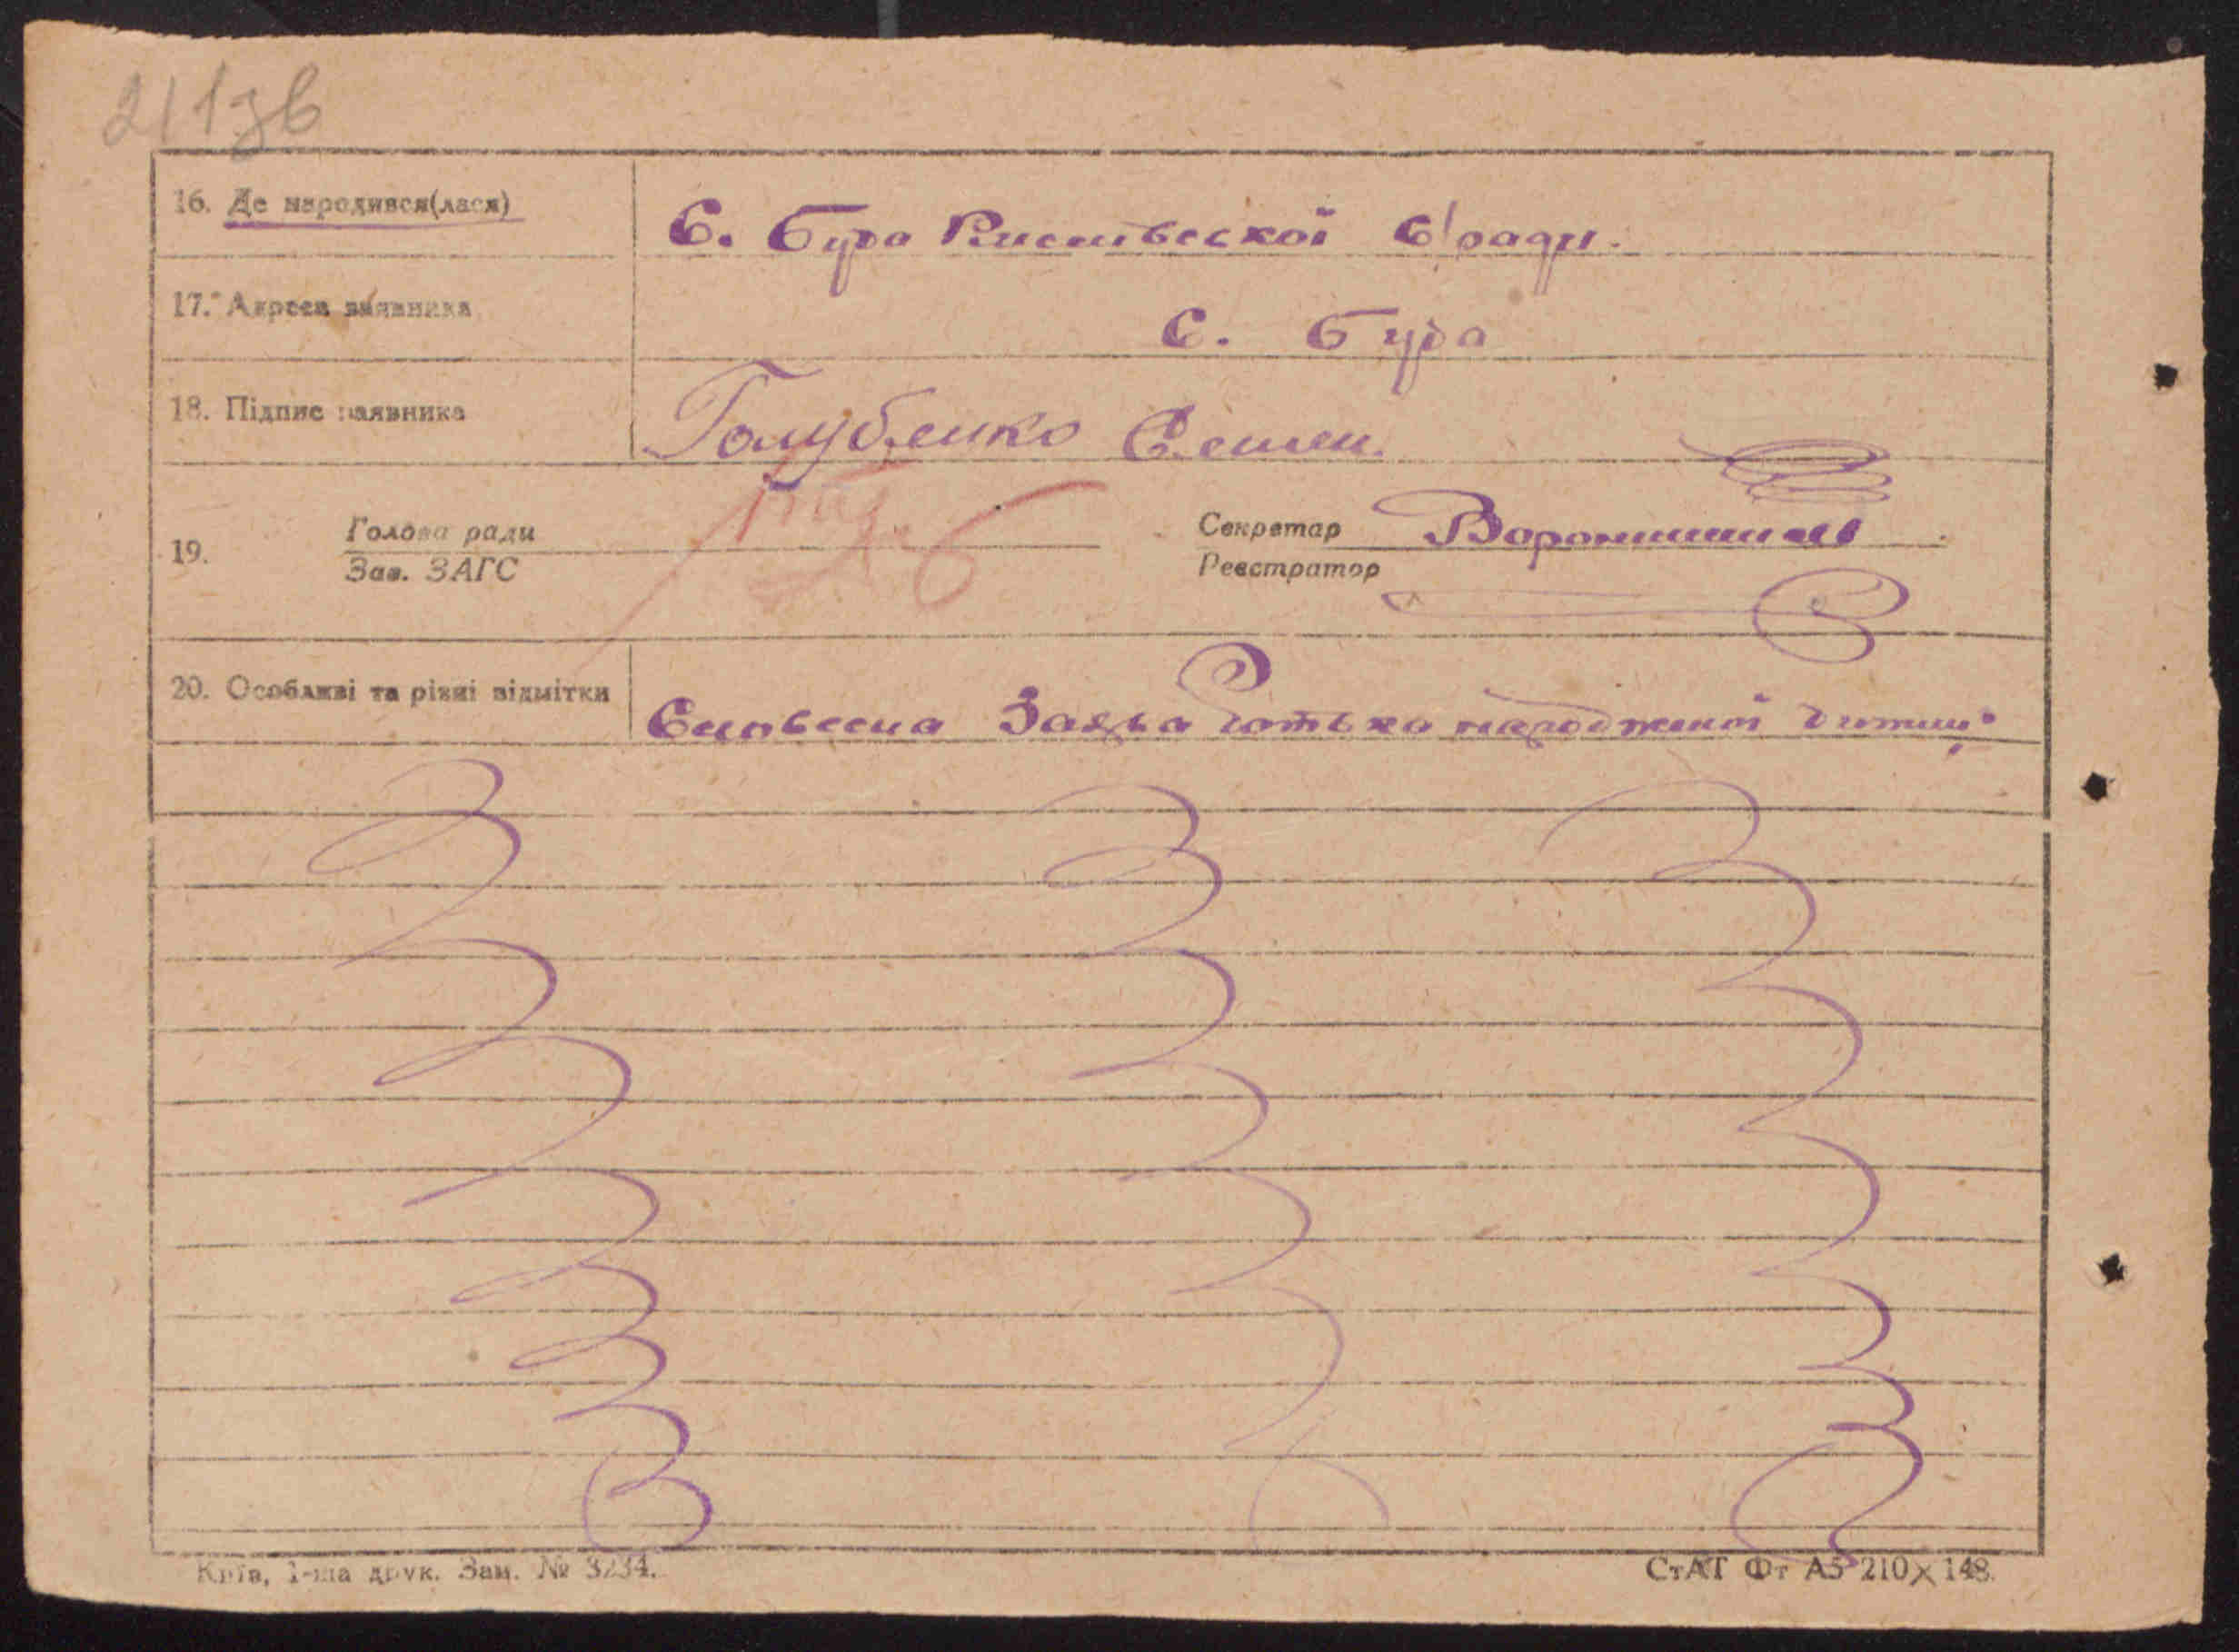 16. Де народився(лася)
С. Бура с/ради.
17. Адреса заявника
с. Бура
18. Підпис заявника
Голубенко Семен.
19.
Голова ради
Зав. ЗАГС
Секретар
Реєстратор
20. Особливі та різні відмітки
Заява батька народженої дитини
Київ, 1-ша друк. Зам. № 3234.
СтАТ Фт А5 210×148.